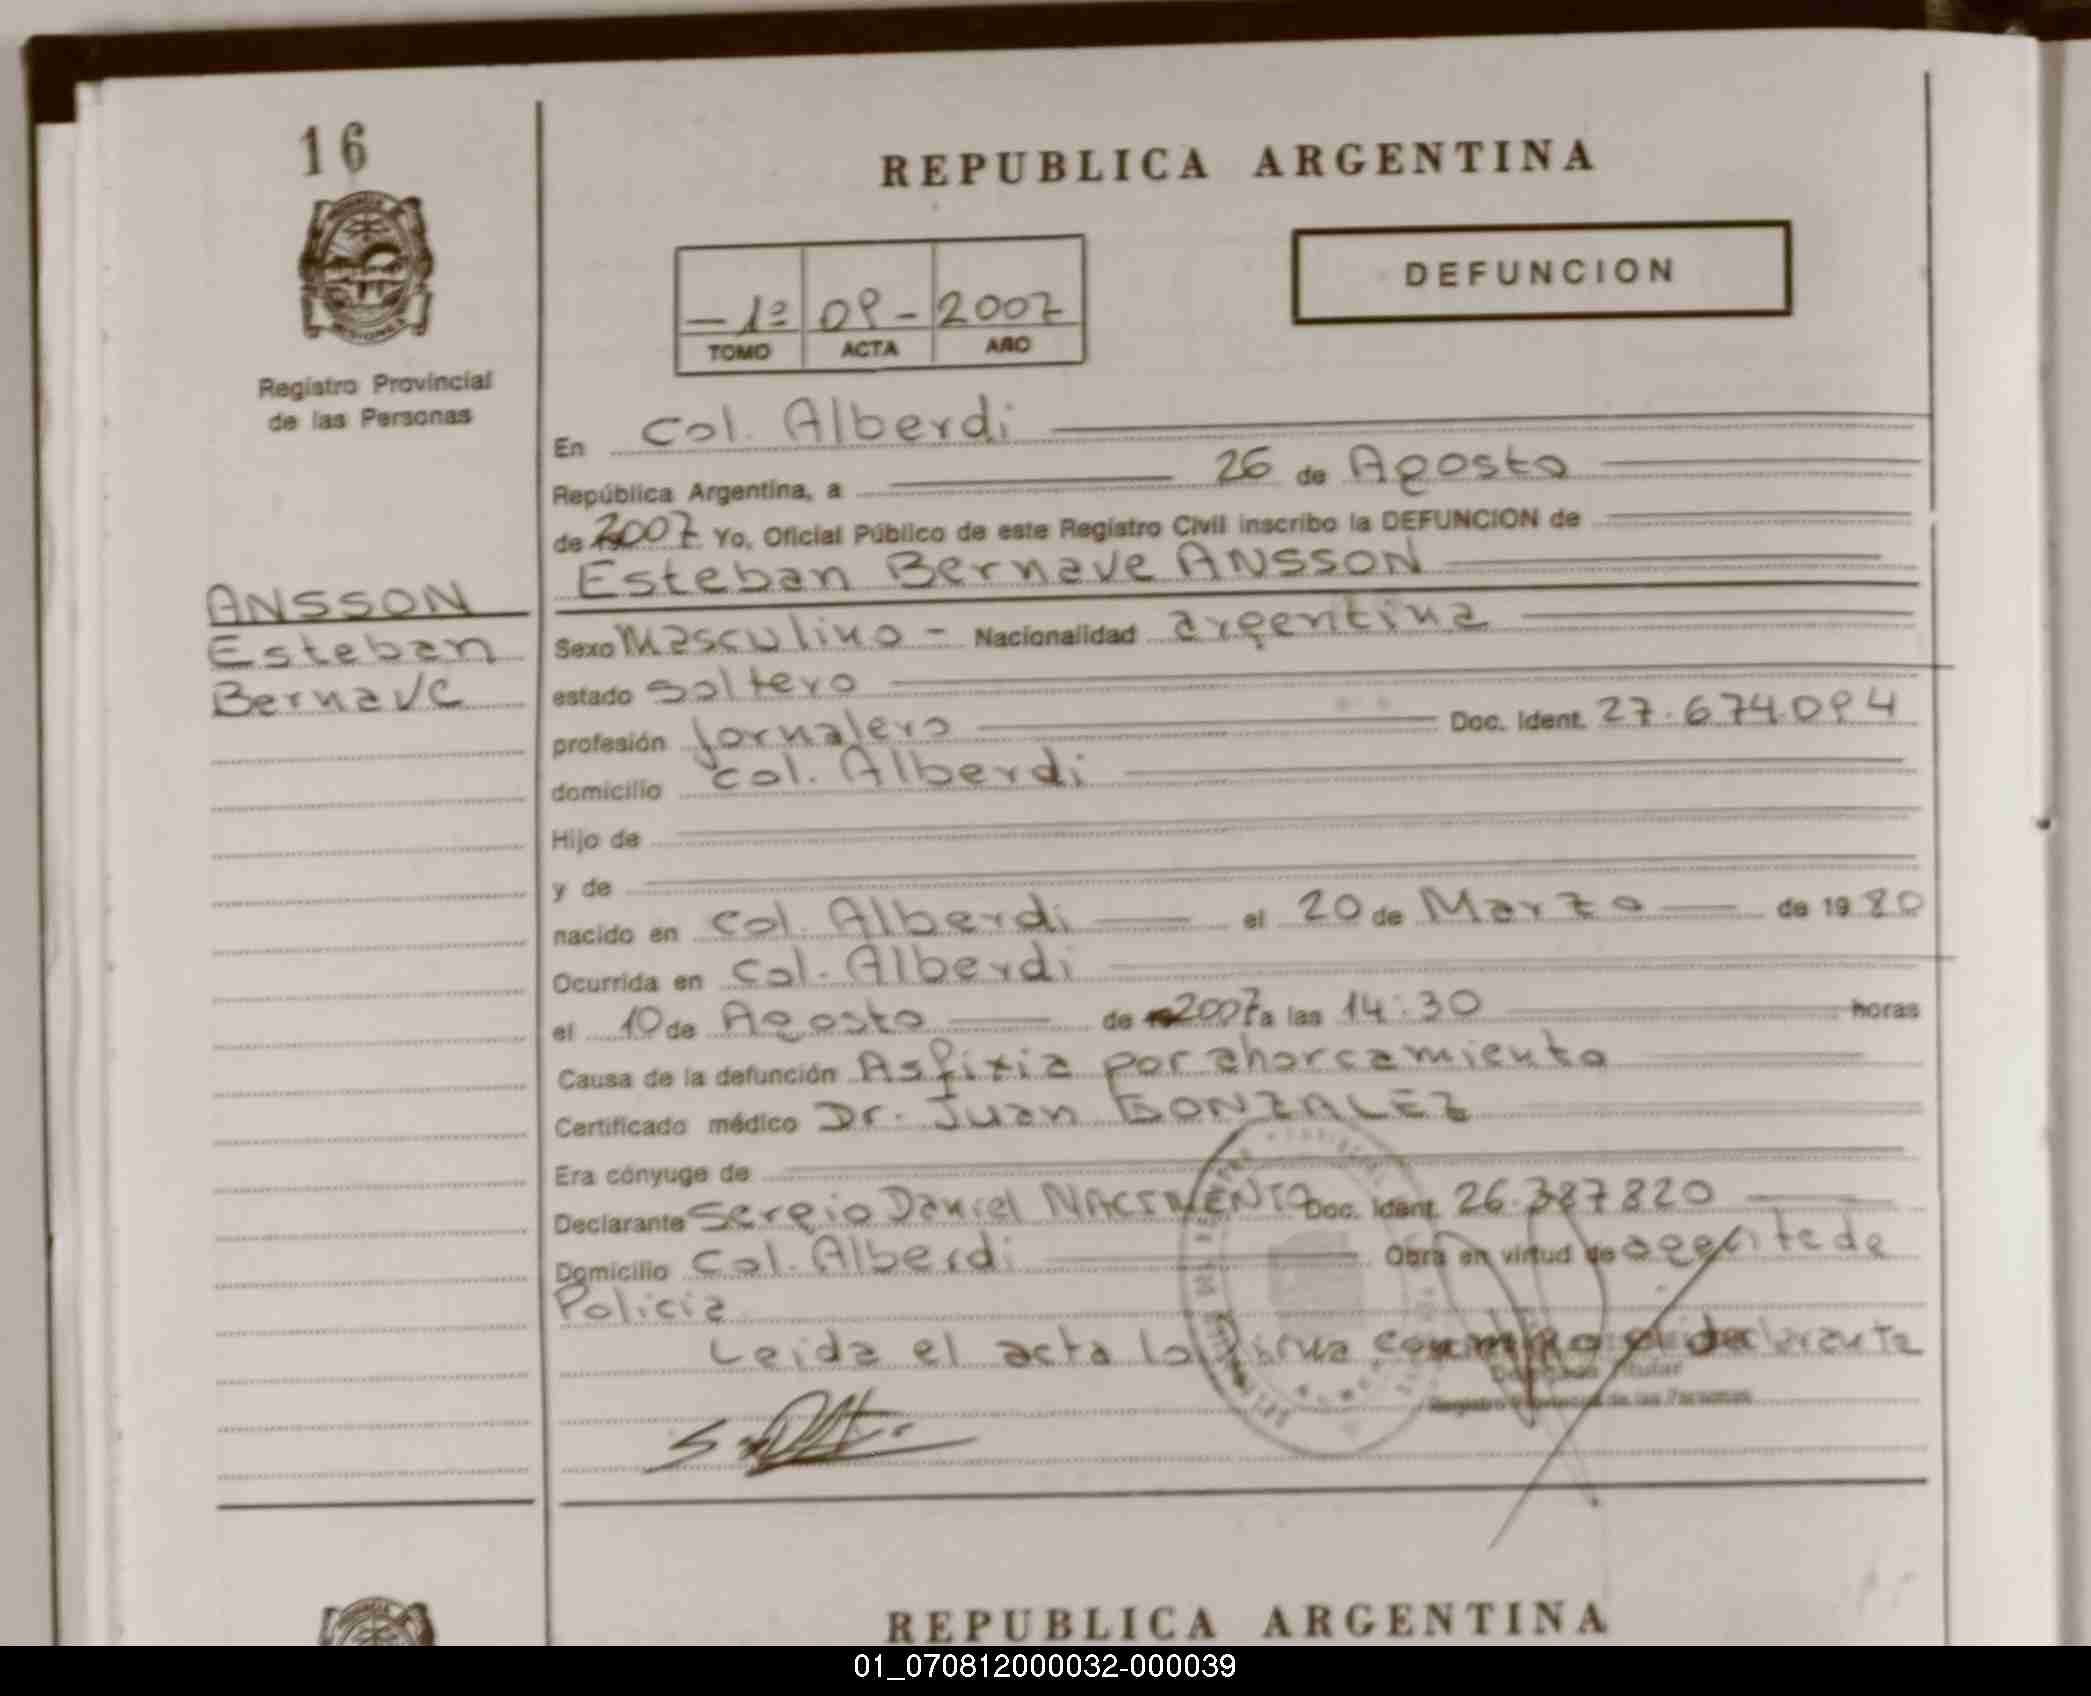 16
REPUBLICA ARGENTINA
DEFUNCION
-1º 09- 2007
TOMO ACTA AÑO
Registro Provincial
de las Personas
En Col. Alberdi
República Argentina, a 26 de Agosto
de 2007 Yo, Oficial Público de este Registro Civil inscribo la DEFUNCION de
Esteban Bernave ANSSON
ANSSON
Esteban
Bernave
Sexo Masculino - Nacionalidad argentina
estado soltero
profesión Jornalero Doc. Ident. 27.674.094
domicilio Col. Alberdi
Hijo de
y de
nacido en Col. Alberdi el 20 de Marzo de 1980
Ocurrida en Col. Alberdi
el 10 de Agosto de 2007 a las 14:30 horas
Causa de la defunción Asfixia por ahorcamiento
Certificado médico Dr. Juan GONZALEZ
Era cónyuge de
Declarante Sergio Daniel NACIMENTO Doc. Ident. 26.387820
Domicilio Col. Alberdi Obra en virtud de agente de
Policia
Leida el acta la firma conmigo el declarante
Titular
Registro Provincial de las Personas
REPUBLICA ARGENTINA
01_070812000032-000039